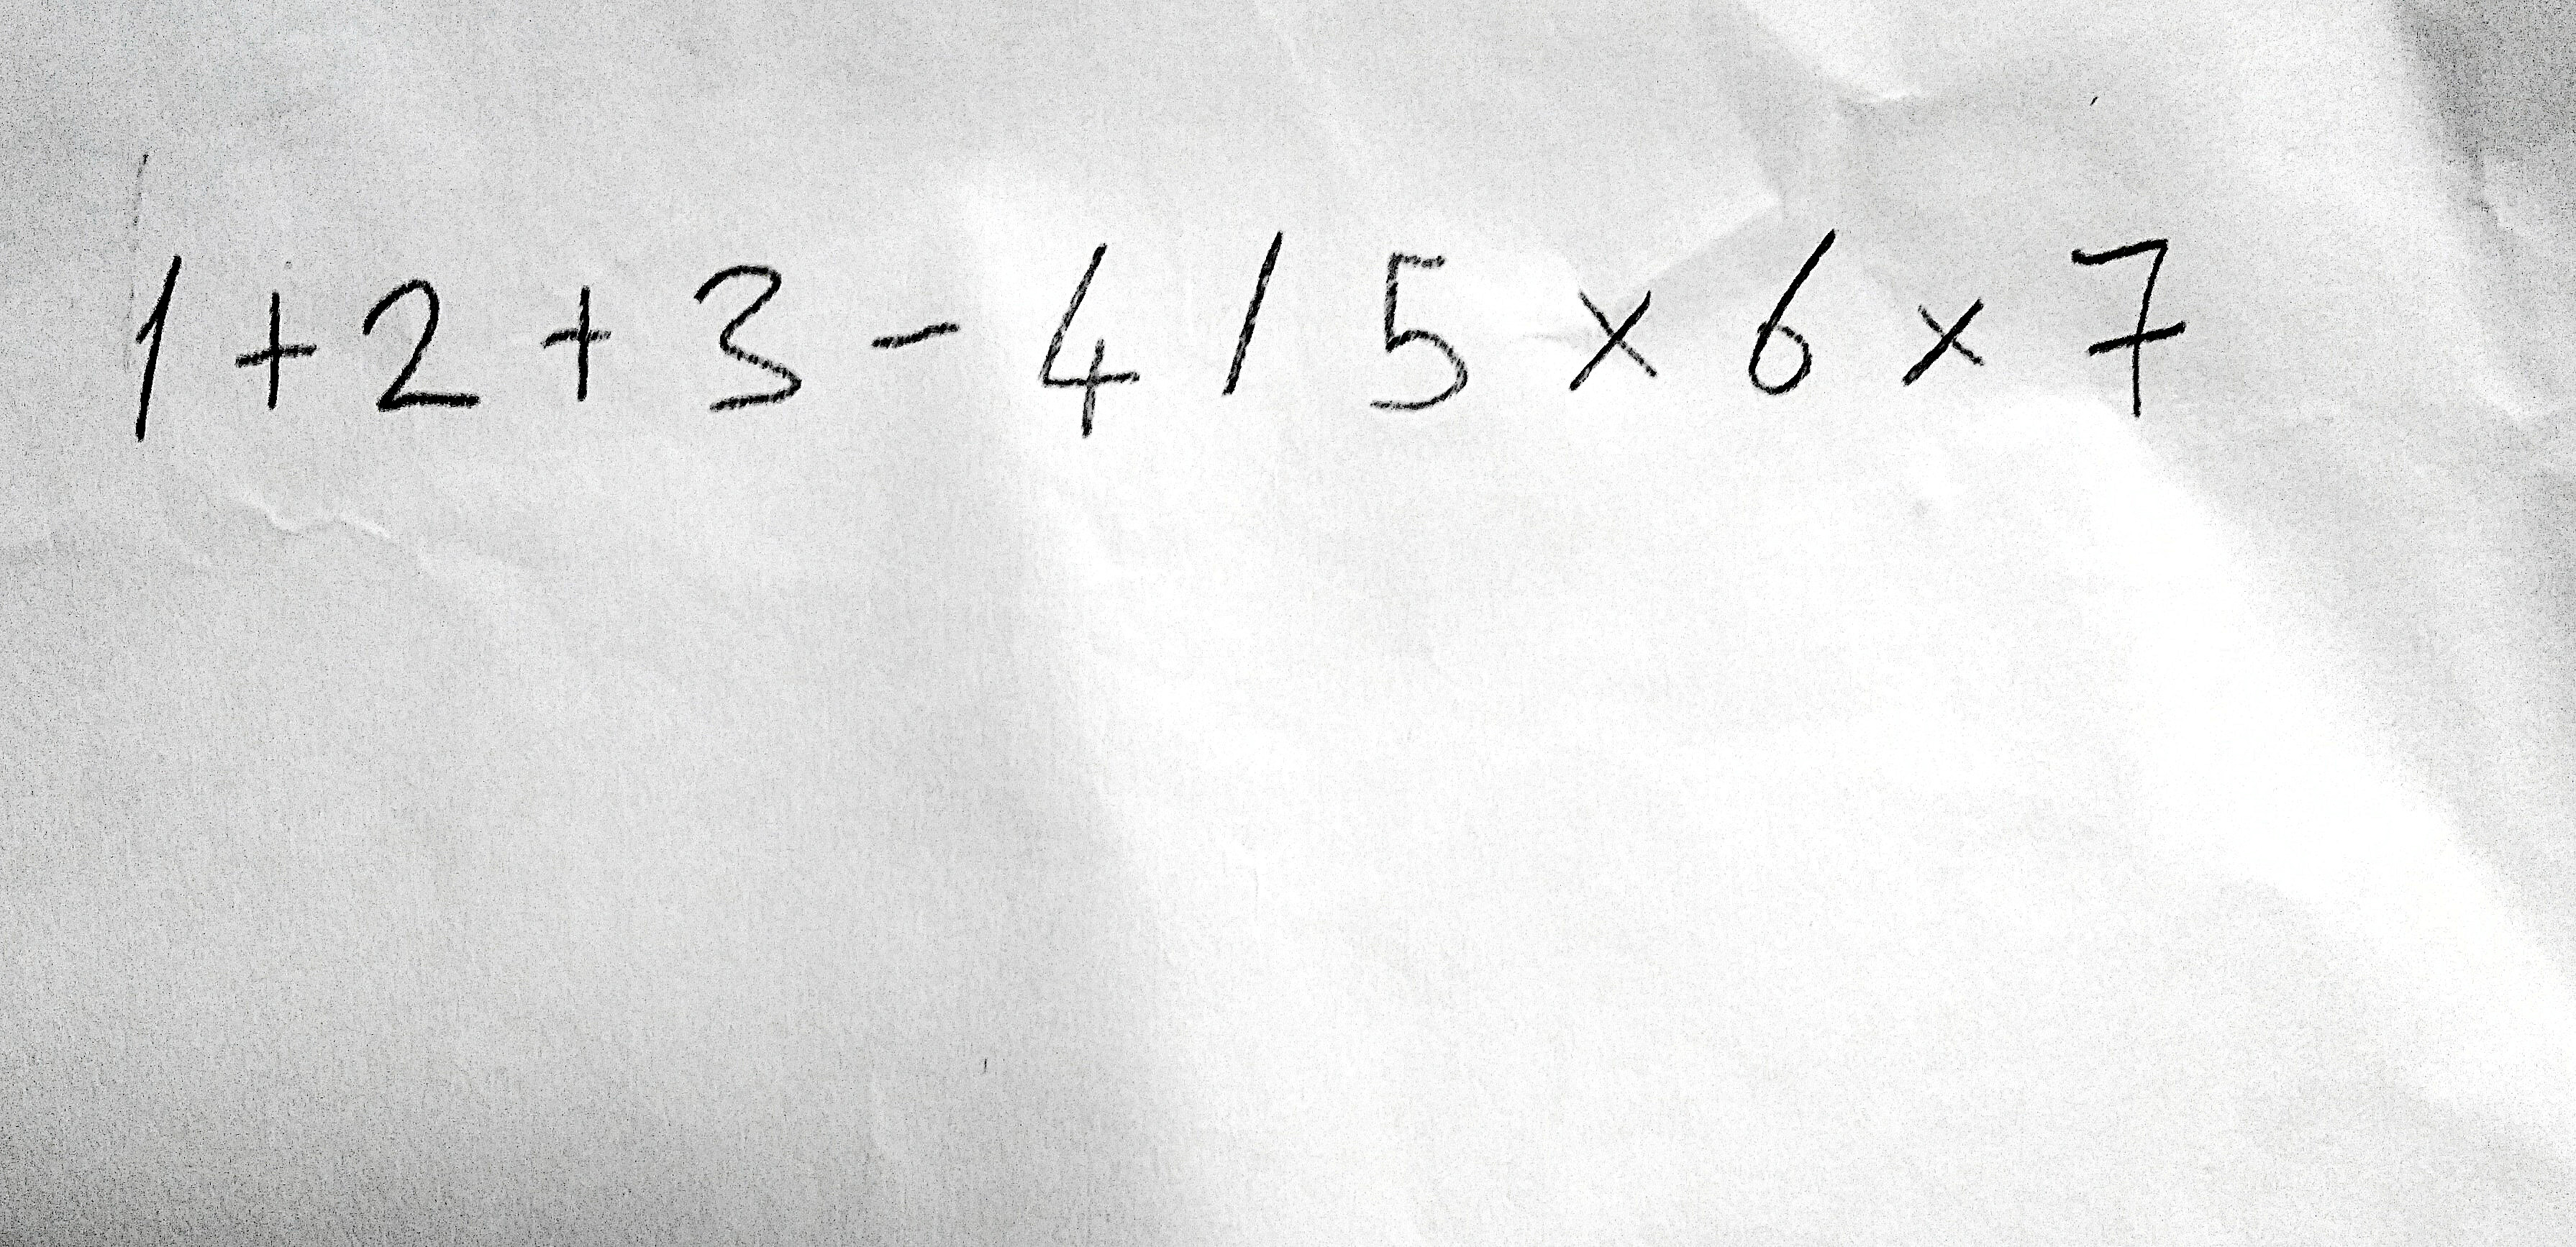 1 + 2 + 3 - 4 / 5 × 6 × 7